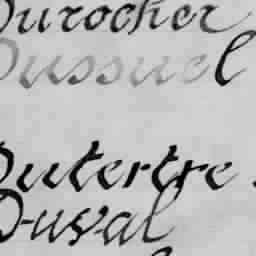 Durocher
Dussuel
Dutertre
Duval